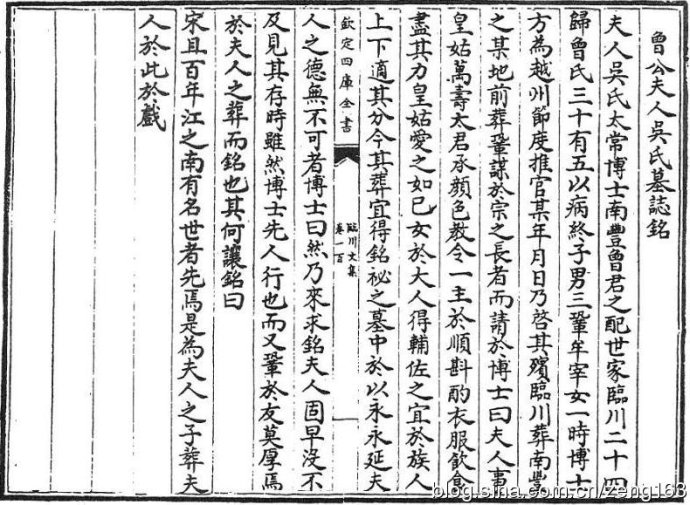 曾公夫人吳氏墓誌銘
夫人吳氏太常博士南豐曾君之配世家臨川二十四
歸曾氏三十有五以病終子男三鞏牟宰女一時博士
方為越州節度推官某年月日乃啓其殯臨川葬南豐
之某地前葬鞏謀於宗之長者而請於博士曰夫人事
皇姑萬壽太君承顔色教令一主於順斟酌衣服飲食
盡其力皇姑愛之如己女於大人得輔佐之宜於族人
上下適其分今其葬宜得銘祕之墓中於以永永延夫
欽定四庫全書
臨川文集
卷一百
人之德無不可者博士曰然乃來求銘夫人固早沒不
及見其存時雖然博士先人行也而又鞏於友莫厚焉
於夫人之葬而銘也其何讓銘曰
宋且百年江之南有名世者先焉是為夫人之子葬夫
人於此於戲
blog.sina.com.cn/zeng163